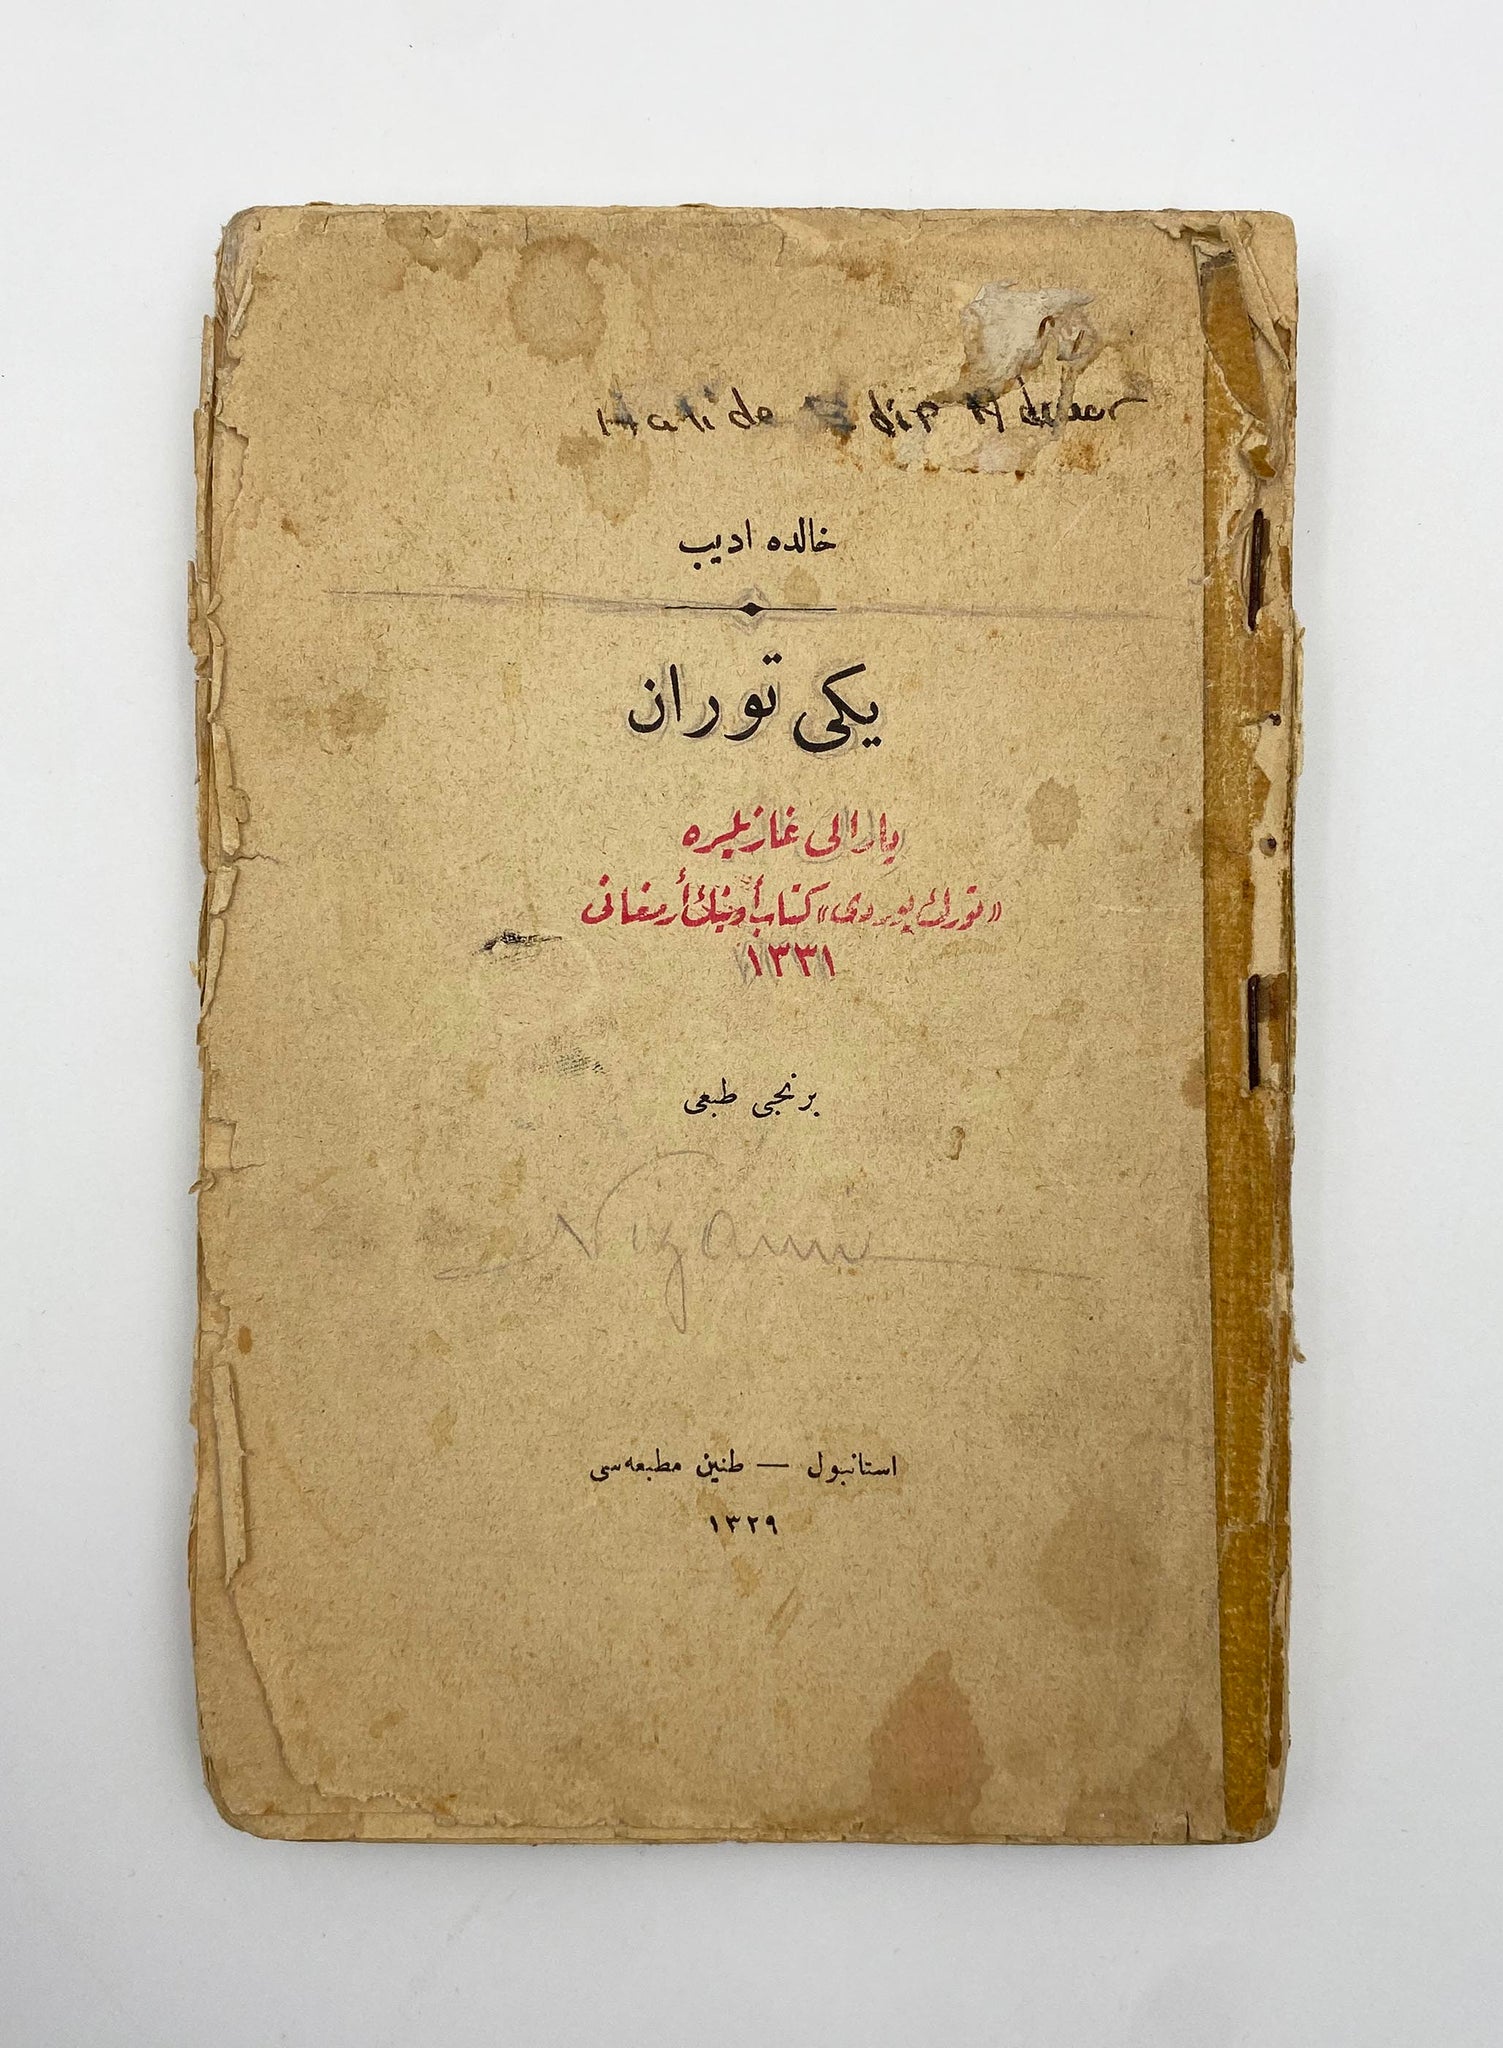 Halide Edip Adıvar
خالده اديب
يكی توران
يارالی غازيلره
«تورك يوردی» كتاب أوينك أرمغانی
١٣٣١
برنجی طبعی
Nizam
استانبول — طنين مطبعه‌سی
١٣٢٩